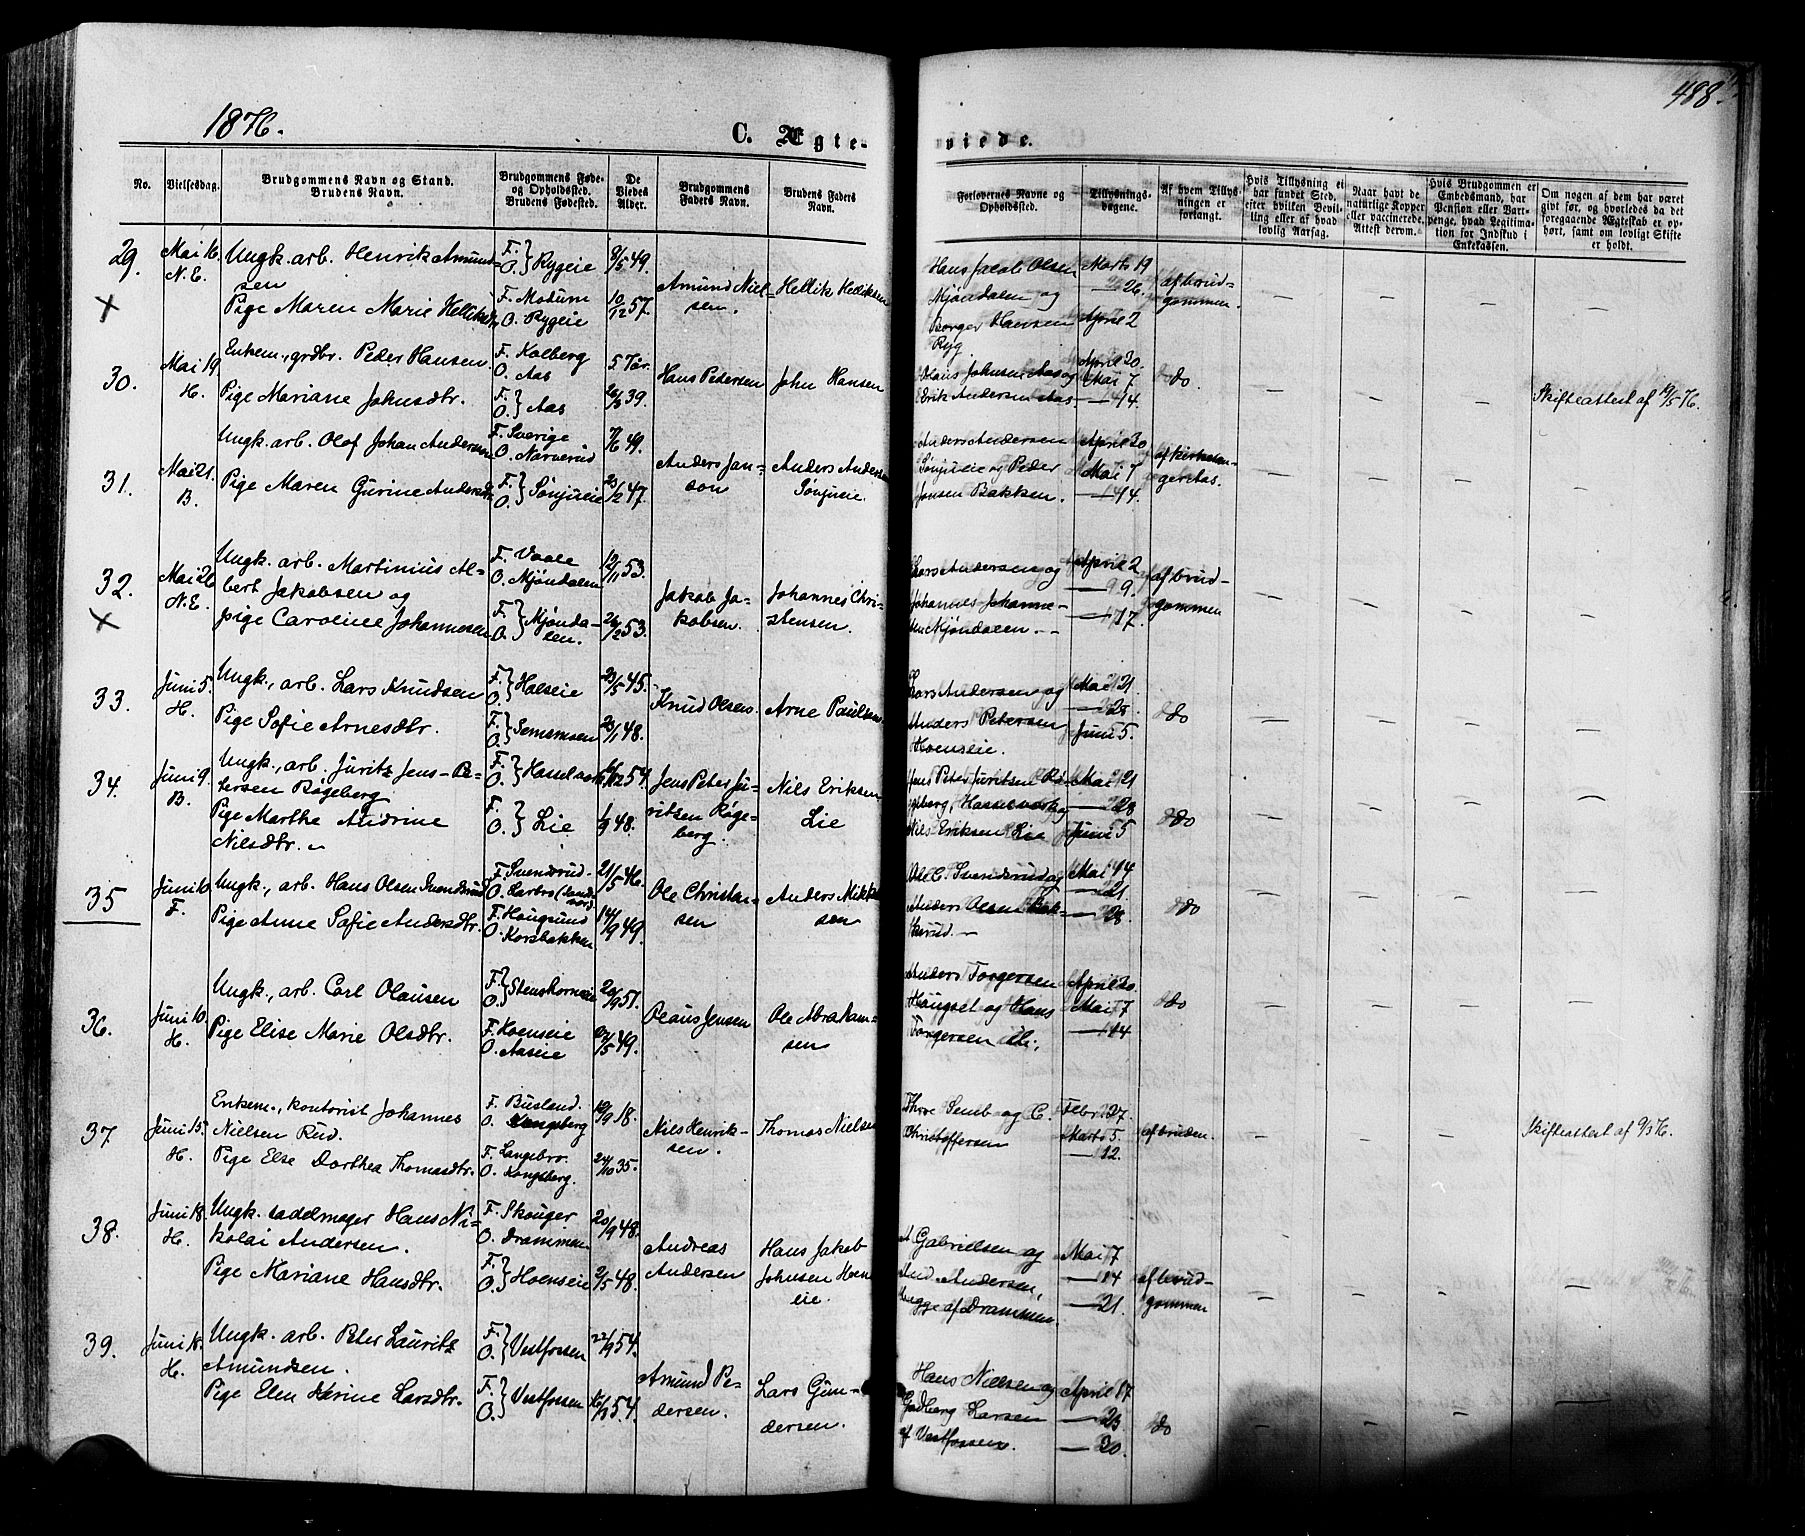 1876.
C. Ægte-
viede.
488.
No.
Vielsesdag.
Brudgommens Navn og Stand.
Brudens Navn.
Brudgommens Føde-
og Opholdssted.
Brudens Fødested.
De
Viedes
Alder.
Brudgommens
Faders Navn.
Brudens Faders
Navn.
Forlovernes Navne og
Opholdssted.
Tillysnings-
dagene.
Af hvem Tillys-
ningen er
forlangt.
Hvis Tillysning ei
har fundet Sted,
efter hvilken Bevil-
ling eller af hvad
lovlig Aarsag.
Naar havt de
naturlige Kopper
eller vaccinerede.
Attest derom.
Hvis Brudgommen er
Embedsmand, har
Pension eller Var-
penge, hvad Legitima-
tion for Indskud i
Enkekassen.
Om nogen af dem har været
gift før, og hvorledes da det
foregaaende Ægteskab er op-
hørt, samt om lovligt Skifte
er holdt.
29.
Mai 16.
N.E.
Ungk. arb. Henrik Amund-
sen
Pige Maren Marie Helliksdtr
F. } Rygeie
O.
F. Modum
O. Rygeie
8/5 49.
10/12 57.
Amund Niel-
sen.
Hellik Helliksen
Hans Jacob Olsen
Mjøndalen og
Borger Hansen
Ryg.
Marts 19
— 26.
April 2
af brud-
gommen.
30.
Mai 19.
H.
Enkem., grdbr. Peder Hansen
Pige Mariane Johnsdtr.
F. Kolberg
O. Aas
F. } Aas
O.
39.
Hans Pedersen
John Hansen
Hans Johnsen Aas og
Erik Andersen Aas.
April 30.
Mai 7
— 14.
do.
Skifteattest af 19/5 76.
31.
Mai 21.
B.
Ungk. arb. Olof Johan Andersen
Pige Maren Gurine Andersdtr
F. Sverige
O. Narverud
F. } Sønjueie
O.
49.
23/12 47.
Anders Jan-
son
Anders Andersen
Sønjueie.
Anders Andersen
Sønjueie og Peder
Jonsen Bakken.
April 30
Mai 7
— 14.
32.
Mai 26.
N.E.
Ungk. arb. Martinius Al-
bert Jakobsen og
pige Caroline Johannesen
F. Vaale
O. Mjøndalen
F. } Mjønda-
O. len.
12/11 53.
26/12 53.
Jakob Ja-
kobsen.
Johannes Chri-
stensen.
Lars Andersen og
Johannes Johanne-
sen Mjøndalen.
April 2
— 9.
— 17.
af brud-
gommen
33.
Juni 5.
H.
Ungk., arb. Lars Knudsen
Pige Sofie Arnesdtr.
F. } Halseie
O.
F. } Semsmoen
O.
23/5 45.
23/1 48.
Knud Olsen.
Arne Paulsen
Lars Andersen og
Anders Petersen
Hoenseie.
Mai 21
— 28
Juni 5.
do
34.
Juni 9.
B.
Ungk., arb. Juritz Jens-Pe-
tersen Røgeberg
Pige Marthe Andrine
Nilsdtr.
F. }
O.
F. } Lie
O.
54.
1/9 48.
Jens Peter Ju-
ritsen Røge-
berg.
Nils Eriksen
Lie
Jens Peter Juritsen Rø-
geberg, Hasselværk og
Nils Eriksen Lie
Mai 21
— 28
Juni 5
do
35
Juni 10
F.
Ungk., arb. Hans Olsen Svendsrud
Pige Anne Sofie Andersdtr.
F. Svendsrud
O.
F. Hougsund
O. Korsbakken
21/5 46.
14/9 49.
Ole Christian-
sen
Anders Mikkel-
sen
Ole C. Svendsrud og
Anders Olsen
Mai 14
— 21.
— 28
do
36.
Juni 10.
H.
Ungk., arb. Carl Olausen
Pige Elise Marie Olsdtr.
F. }
O.
F. Hoenseie
O. Aaseie
20/9 51.
49.
Olaus Jensen
Ole Abraham-
sen
Anders Torgersen
Haugset og Hans
Torgersen
April 30.
Mai 7
— 14
do
37
Juni 15.
H.
Enkem., kontorist Johannes
Nielsen Rud.
Pige Else Dorthea Thomasdtr.
F. Busland.
O. Kongsberg
F. Langebro.
O. Kongsberg.
18.
24/10 35.
Nils Henrik-
sen.
Thomas Nielsen
Thore Semb og C.
Christoffersen
Febr. 27.
Marts 5.
— 12.
af bruden.
Skifteattest af 9/3 76.
38.
Juni 18.
H.
Ungk. sadelmager Hans Ni-
kolai Andersen.
Pige Mariane Hansdtr.
F. Skouger
O. Drammen
F. } Hoenseie
O.
20/9 48.
2/5 48.
Andreas
Andersen
Hans Jakob
Johnsen Hoens-
eie.
A. Gabrielsen og
And. Andersen,
begge af Drammen.
Mai 7
— 14
— 21.
af brud-
gommen
39.
Juni 18.
H.
Ungk. arb. Peter Lauritz
Amundsen.
Pige Elen Karine Larsdtr.
F. } Vestfossen
O.
F. } Vestfossen
O.
22/9 54.
54.
Amund Pe-
dersen.
Lars Gun-
dersen.
Hans Nielsen og
Gudberg Larsen
af Vestfossen.
April 17
— 23
— 30.
do